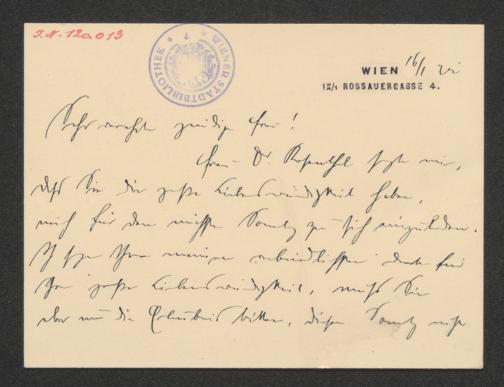 I.N. 120.013
WIENER STADTBIBLIOTHEK
WIEN 16/I
IX/1 ROSSAUERGASSE 4.
Sehr verehrte gnädige Frau!
Frau Dr. Rosenthal sagt mir,
daß Sie die große Liebenswürdigkeit haben,
mich für den nächsten Sonntag zu sich einzuladen.
Ich sage Ihnen meinen verbindlichsten Dank für
Ihre große Liebenswürdigkeit, muß Sie
aber um die Erlaubnis bitten, diesen Sonntag nicht